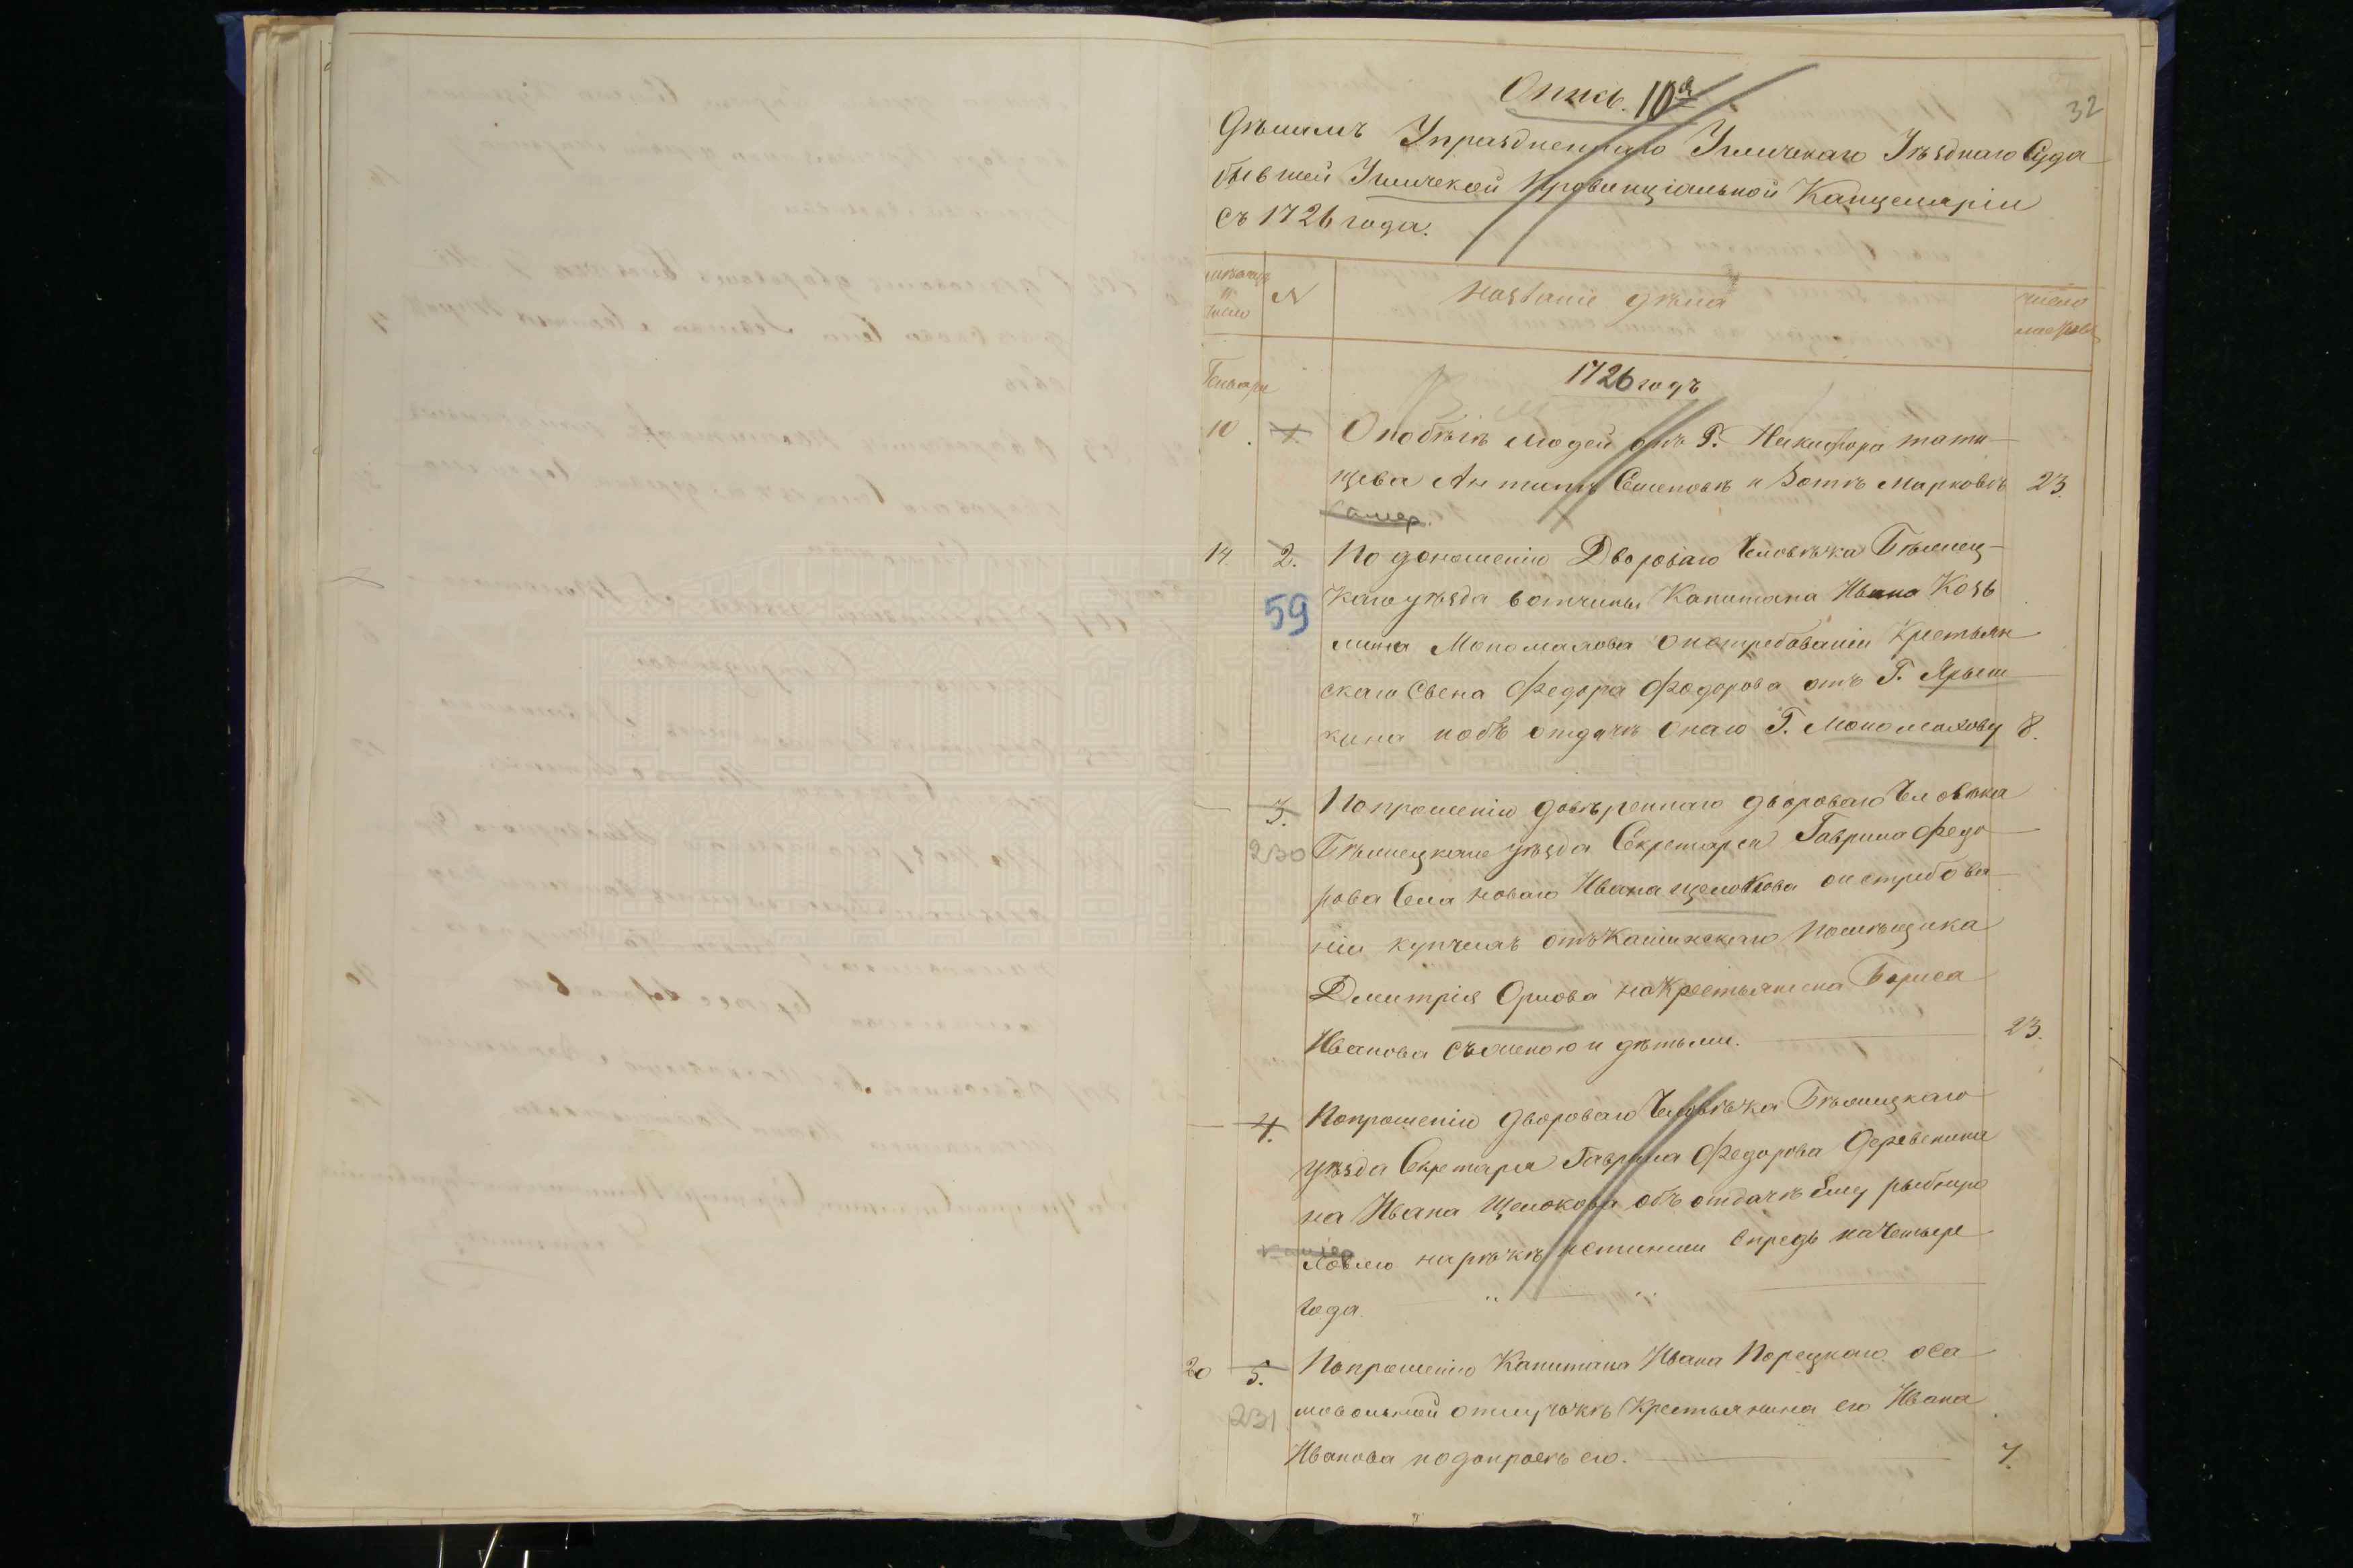 32
Опись 10я
Дѣламъ Упраздненнаго Угличскаго Уѣзднаго Суда
бывшей Угличской Провинціальной Канцеляріи
съ 1726 года.
мѣсяцъ и число
N
названіе дѣла
число листовъ
Генваря
1726 годъ
10. 1. О побѣгѣ людей отъ Г. Никифора тати-
щева Антипѣ Семеновѣ и Зотѣ Марковѣ 23.
14. 2. По доношенію Дворового Человѣка Бѣжец-
59 каго уѣзда вотчины Капитана Ивана Козь
мина Мономахова о истребованіи крестьян
скаго Сына Федора Федорова отъ Г. Ярыш
кина и объ отдачѣ онаго Г. Мономахову 8.
3. По прошенію довѣреннаго двороваго Человѣка
230 Бѣжецкаго уѣзда Секретаря Гаврила Федо
рова Села новаго Ивана щелокова о истребова
ніи купчихъ отъ Кашинскаго Помѣщика
Дмитрія Орлова на Крестьянина Бориса
Иванова съ женою и дѣтьми. 23.
4. По прошенію двороваго Человѣка Бѣжецкаго
уѣзда Секретаря Гаврила Федорова Деревенина
на Ивана Щелокова объ отдачѣ ему рыбную
ловлю на рѣкѣ впредь на Четыре
года.
20 5. По прошенію Капитана Ивана Порецкаго о са
231 мовольной отлучкѣ Крестьянина его Ивана
Иванова и о допросѣ его. 7.